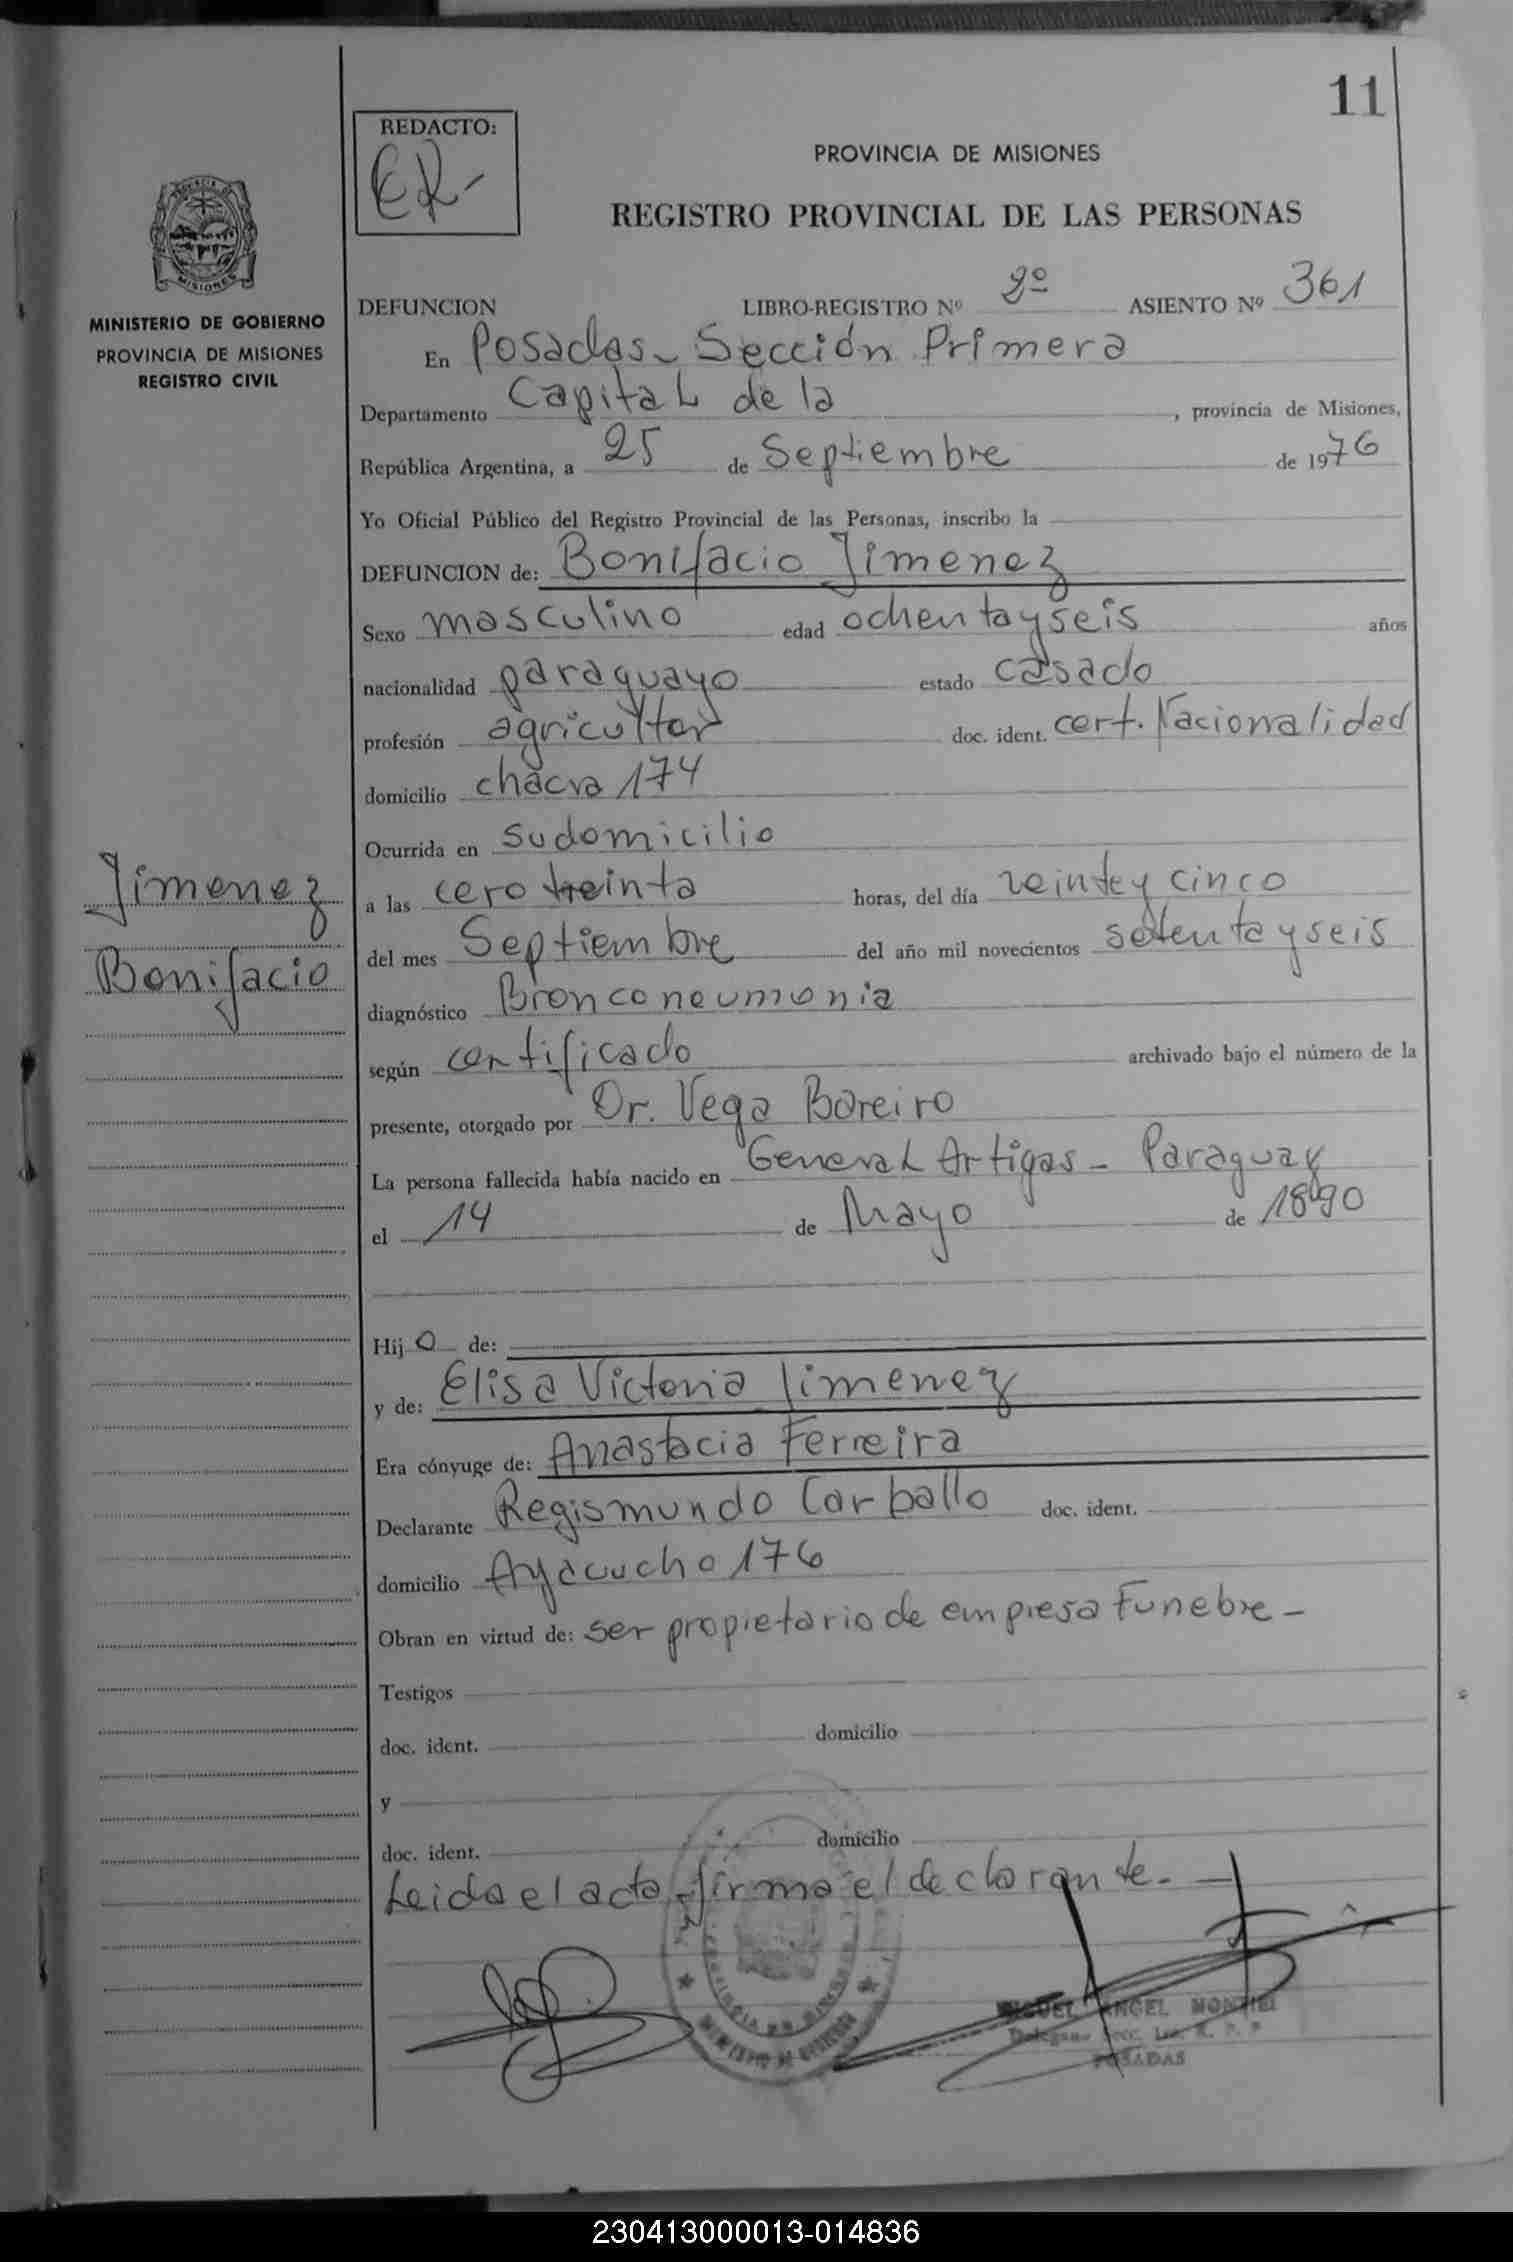 11
REDACTO:
ER-
PROVINCIA DE MISIONES
REGISTRO PROVINCIAL DE LAS PERSONAS
MINISTERIO DE GOBIERNO
PROVINCIA DE MISIONES
REGISTRO CIVIL
DEFUNCION LIBRO-REGISTRO Nº 2º ASIENTO Nº 361
En Posadas - Sección Primera
Departamento Capital de la , provincia de Misiones,
República Argentina, a 25 de Septiembre de 1976
Yo Oficial Público del Registro Provincial de las Personas, inscribo la
DEFUNCION de: Bonifacio Jimenez
Sexo masculino edad ochenta y seis años
nacionalidad paraguayo estado casado
profesión agricultor doc. ident. cert. Nacionalidad
domicilio chacra 174
Ocurrida en su domicilio
Jimenez
Bonifacio
a las cero treinta horas, del día veinte y cinco
del mes Septiembre del año mil novecientos setenta y seis
diagnóstico Bronconeumonia
según certificado archivado bajo el número de la
presente, otorgado por Dr. Vega Bareiro
La persona fallecida había nacido en General Artigas - Paraguay
el 14 de Mayo de 1890
Hijo de:
y de: Elisa Victoria Jimenez
Era cónyuge de: Anastacia Ferreira
Declarante Regismundo Carballo doc. ident.
domicilio Ayacucho 176
Obran en virtud de: ser propietario de empresa Funebre -
Testigos
doc. ident. domicilio
y
doc. ident. domicilio
Leida el acta, firma el declarante. -
MIGUEL ANGEL MONTIEL
POSADAS
230413000013-014836